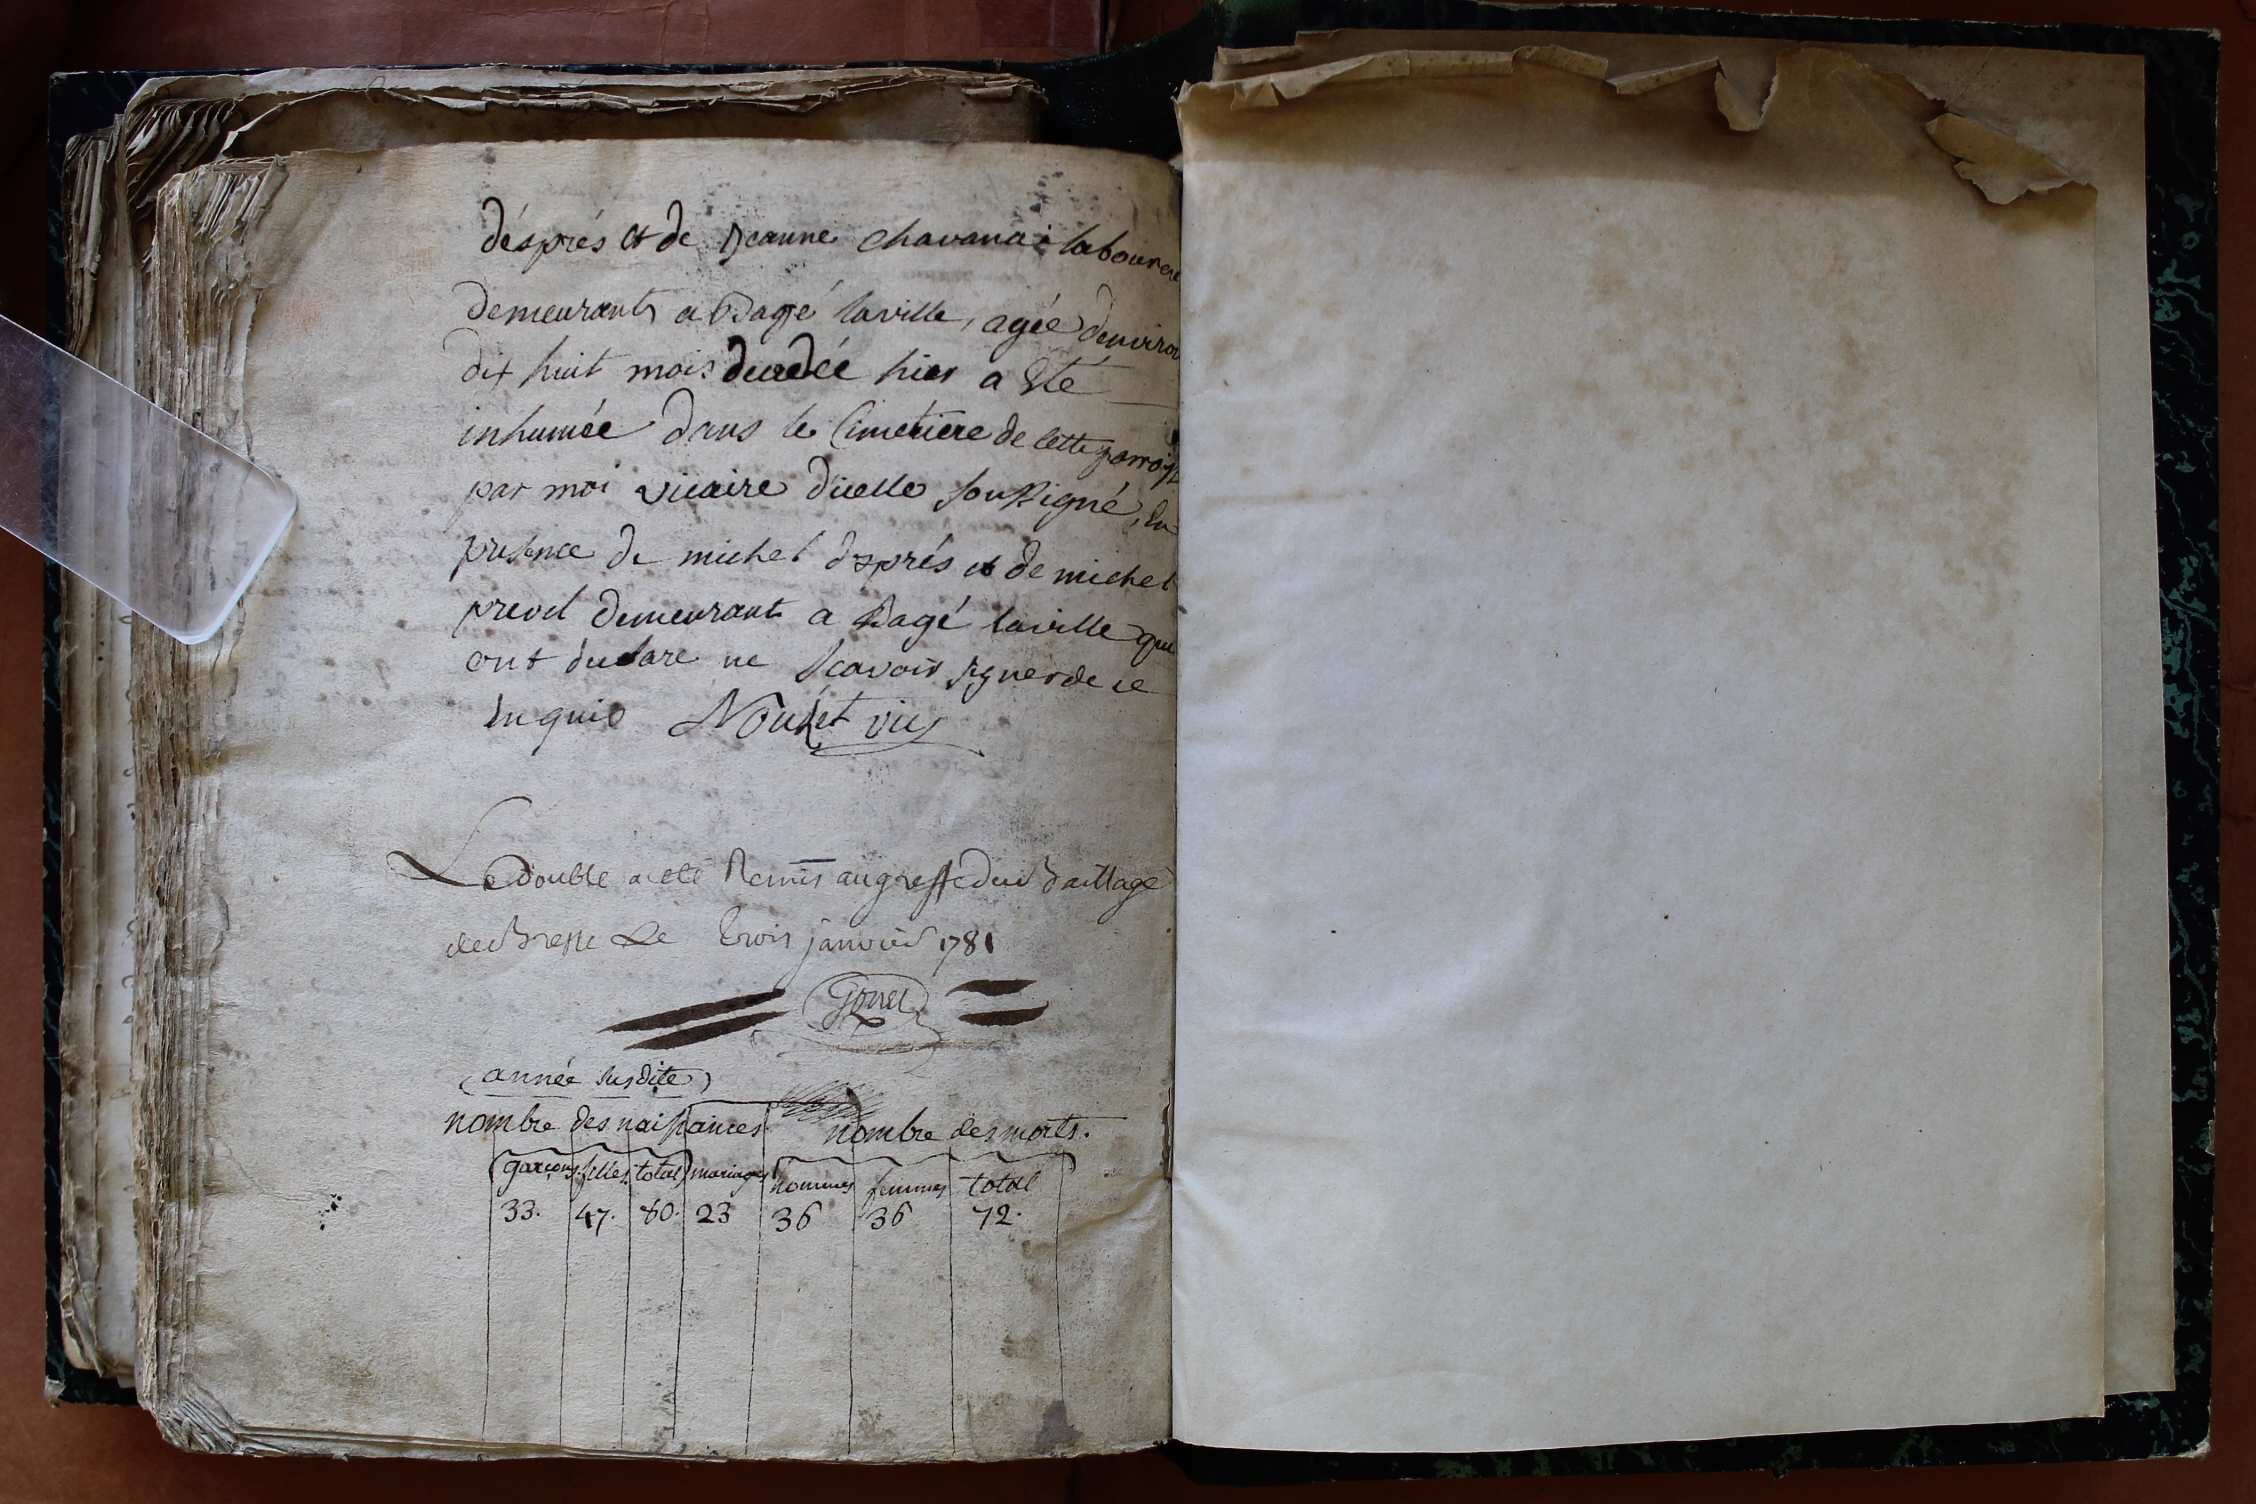 désprés et de Jeanne Chavanai laboureur
demeurants a Bagé laville, agée denviron
dix huit mois decedée hier a Eté
inhumée dans le Cimetiere de cette parroisse
par moi vicaire dicelle soussigné, En
presence de michel després et de michel
prevel demeurants a Bagé laville qui
ont declare ne scavoir signer de ce
Enquis Nouhet vic
Le double a eté Remis au greffe du Baillage
de Bresse Le trois janvier 1781
Gonet
(année susdite)
nombre des naissances nombre des morts.
garçons filles total mariages hommes femmes total
33. 47. 80. 23 36 36 72.